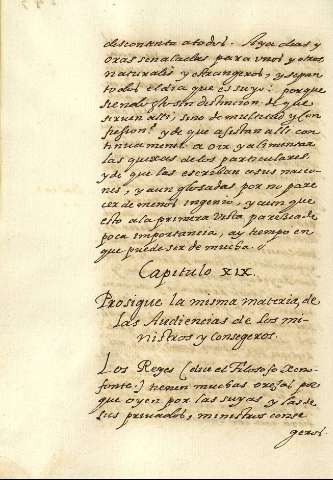 descontenta atodos. Aya dias y
oras señaladas para unos y otros,
naturales y estrangeros, y sepan
todos el dia que es suyo: porque
siendo sin distincion de que
sirven alli, sino de multitud y con
fusion? y de que asistan alli con
tinuamente a oir, y alimentar
las quexas de los particulares,
y de que las escriban a sus nacio
nes, y aun glosadas por no pare
cer de menos ingenio, y aun que
esto a la primera vista parezca de
poca importancia, ay tiempo en
que puede ser de mucha.
Capitulo XIX.
Prosigue la misma materia, de
las Audiencias de los mi-
nistros y consegeros.
Los Reyes (dice el Filosofo Xeno-
fonte.) tienen muchas orejas por
que oyen por las suyas y las de
sus privados, ministros conse
geros.